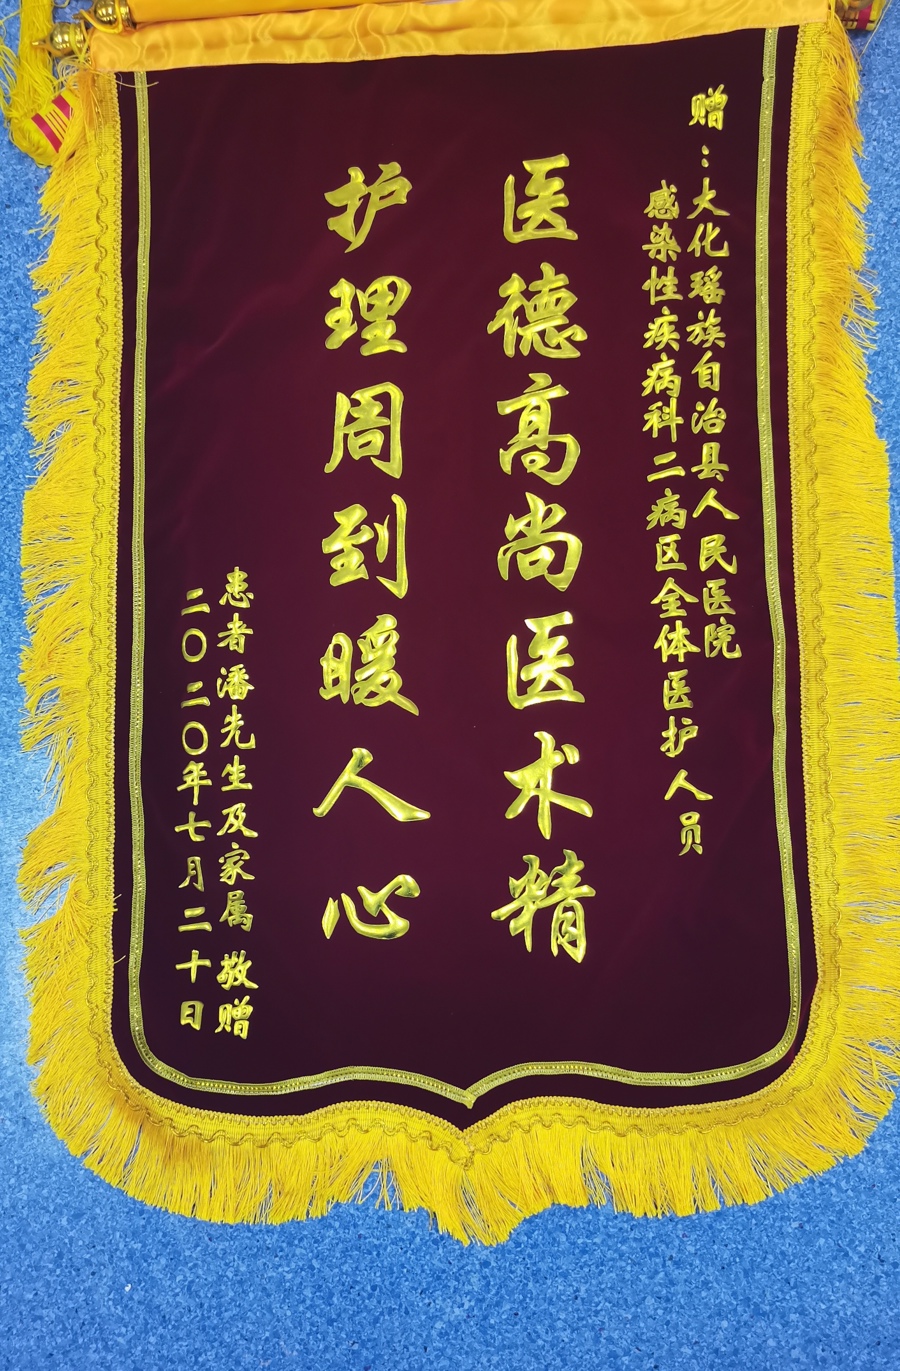 赠：大化瑶族自治县人民医院
感染性疾病科二病区全体医护人员
医德高尚医术精
护理周到暖人心
患者潘先生及家属 敬赠
二〇二〇年七月二十日